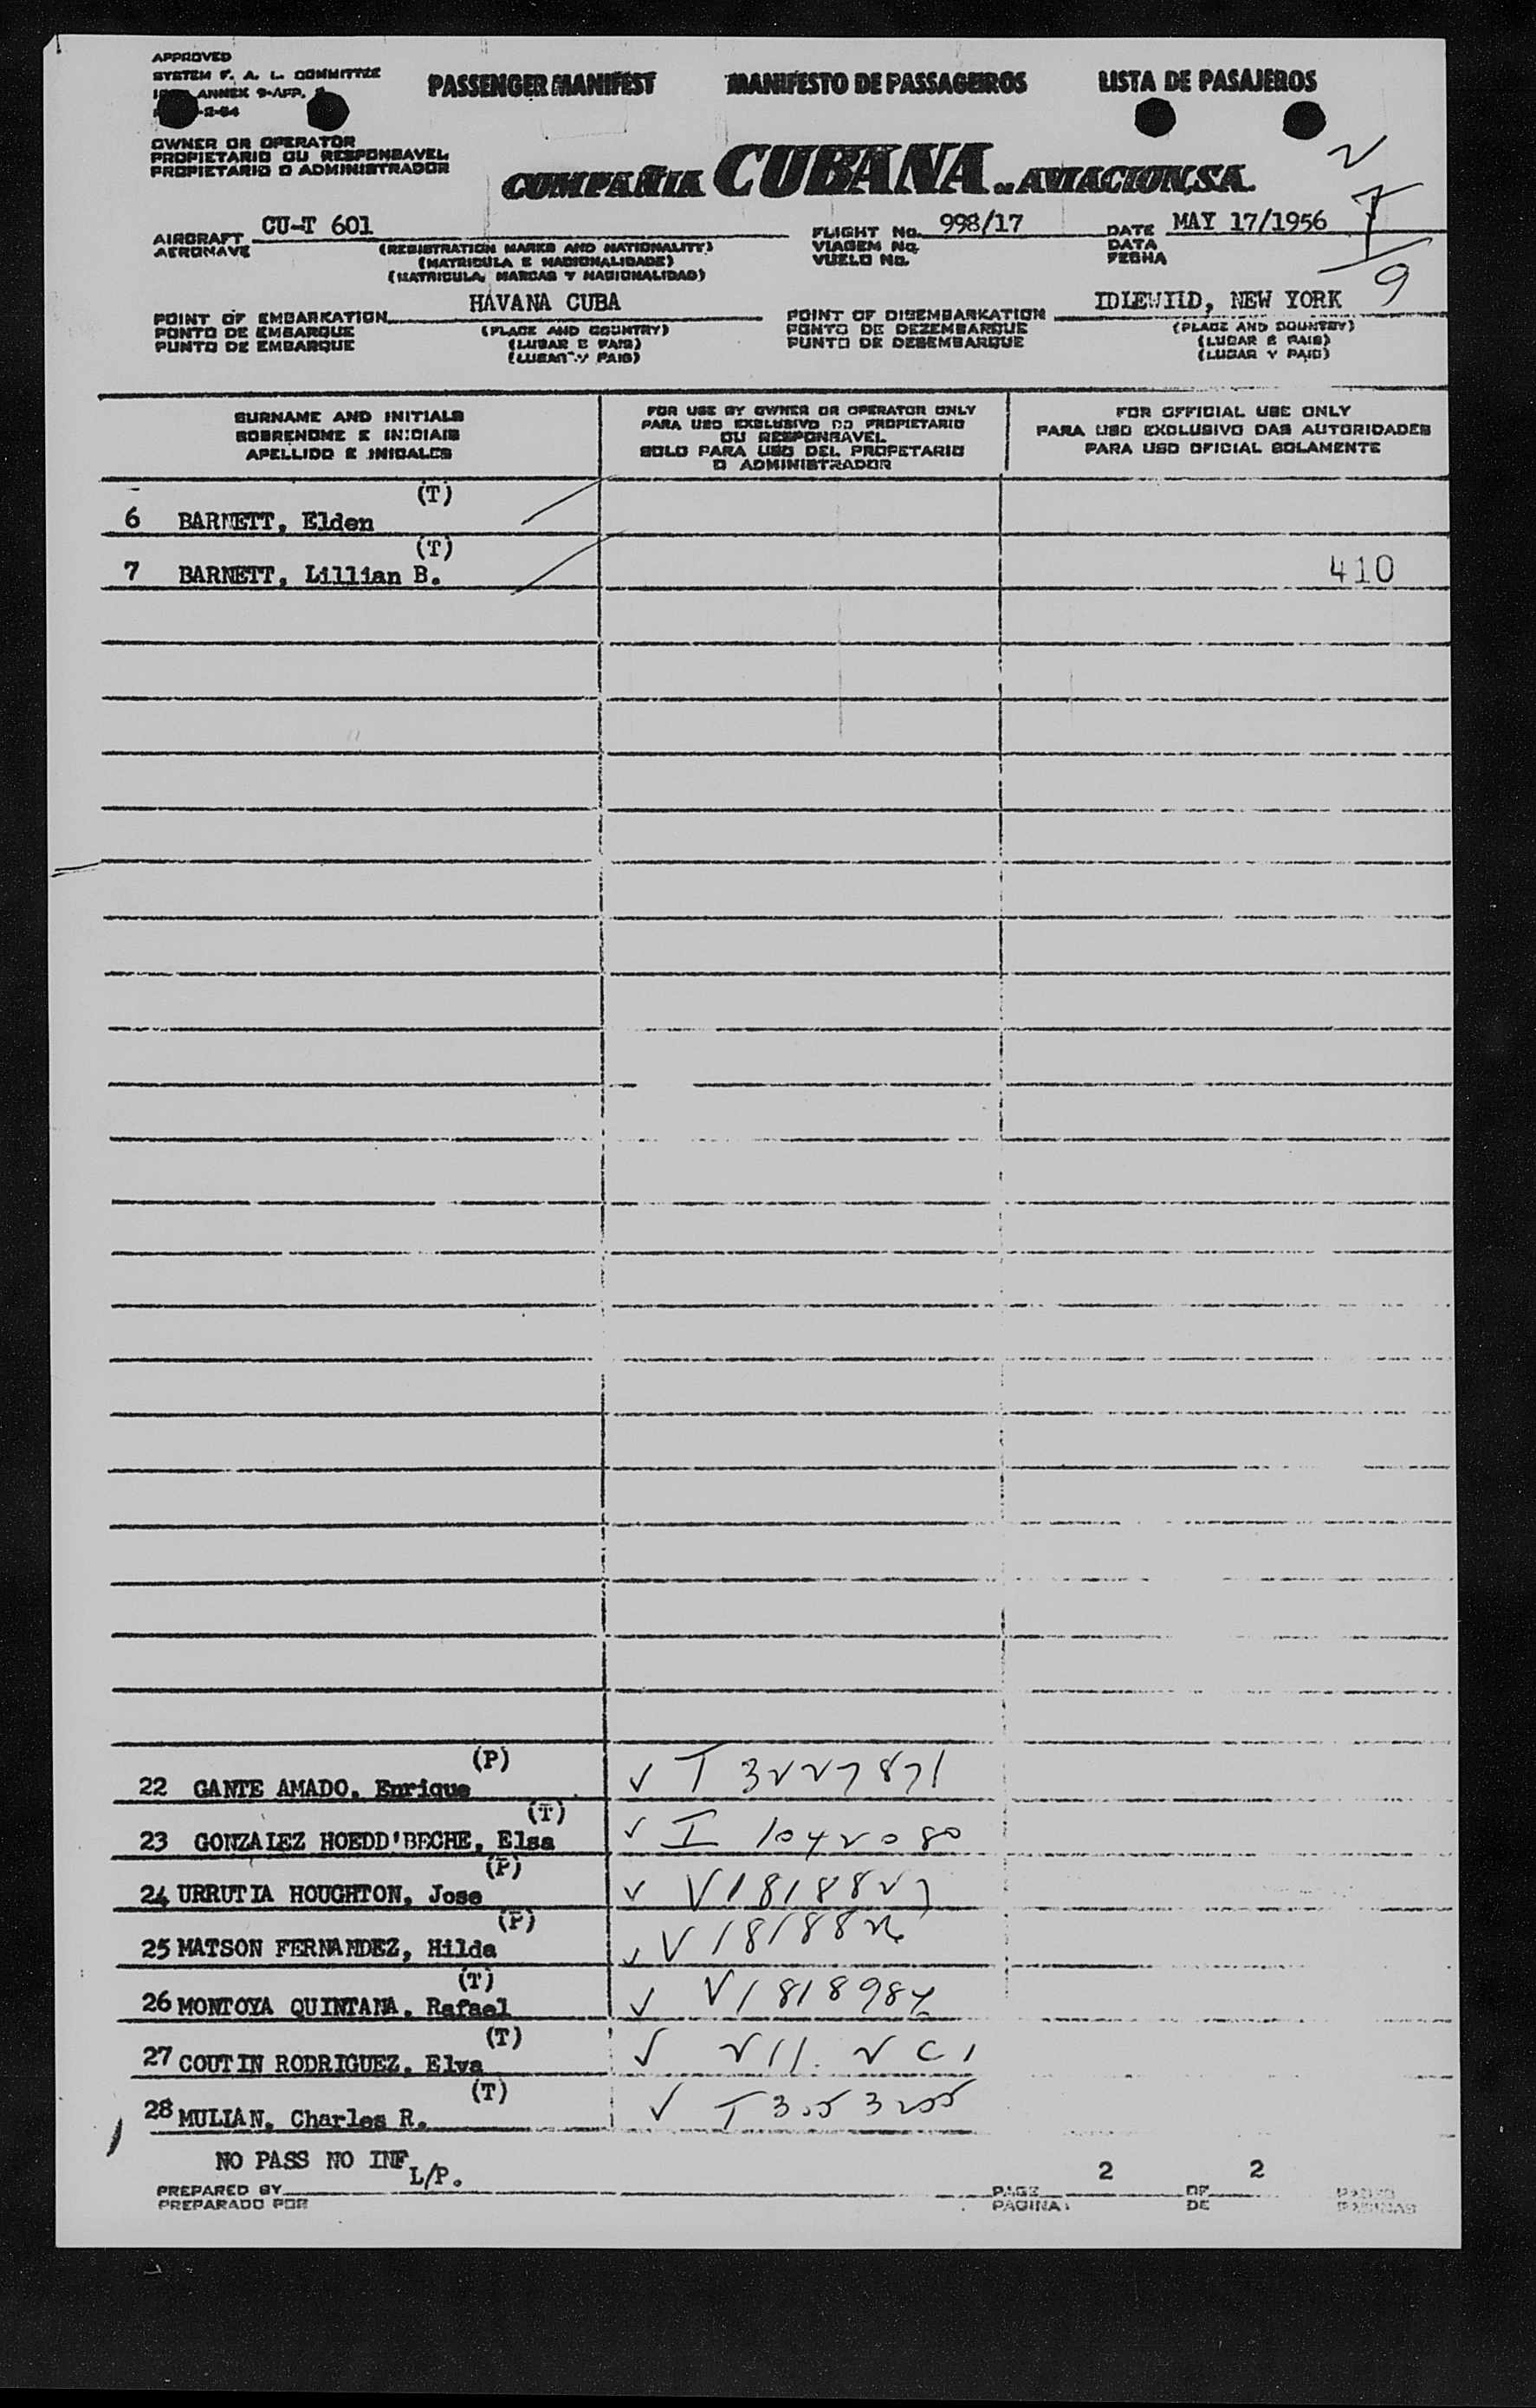 APPROVED
SYSTEM F. A. L. COMMITTEE
ANNEX 9-APP.
PASSENGER MANIFEST MANIFESTO DE PASSAGEIROS LISTA DE PASAJEROS
OWNER OR OPERATOR
PROPIETARIO OU RESPONSAVEL
PROPIETARIO O ADMINISTRADOR
COMPAÑIA CUBANA DE AVIACION, S.A.
2
7
9
AIRCRAFT CU-T 601 FLIGHT No. 998/17 DATE MAY 17/1956
AERONAVE (REGISTRATION MARKS AND NATIONALITY) VIAGEM No. DATA
(MATRICULA E NACIONALIDADE) VUELO No. FECHA
(MATRICULA, MARCAS Y NACIONALIDAD)
POINT OF EMBARKATION HAVANA CUBA POINT OF DISEMBARKATION IDLEWILD, NEW YORK
PONTO DE EMBARQUE (PLACE AND COUNTRY) PONTO DE DEZEMBARQUE (PLACE AND COUNTRY)
PUNTO DE EMBARQUE (LUGAR E PAIS) PUNTO DE DESEMBARQUE (LUGAR E PAIS)
(LUGAR Y PAIS) (LUGAR Y PAIS)
SURNAME AND INITIALS
SOBRENOME E INICIAIS
APELLIDO E INICALES
FOR USE BY OWNER OR OPERATOR ONLY
PARA USO EXCLUSIVO DO PROPIETARIO
OU RESPONSAVEL
SOLO PARA USO DEL PROPETARIO
O ADMINISTRADOR
FOR OFFICIAL USE ONLY
PARA USO EXCLUSIVO DAS AUTORIDADES
PARA USO OFICIAL SOLAMENTE
(T)
6 BARNETT, Elden
(T)
7 BARNETT, Lillian B. 410
(P)
22 GANTE AMADO, Enrique ✓ T 3227871
(T)
23 GONZALEZ HOEDD'BECHE, Elsa ✓ I 1042080
(P)
24 URRUTIA HOUGHTON, Jose ✓ V1818827
(P)
25 MATSON FERNANDEZ, Hilda ✓ V181882
(T)
26 MONTOYA QUINTANA, Rafael ✓ V1818984
(T)
27 COUTIN RODRIGUEZ, Elva ✓
(T)
28 MULIAN, Charles R. ✓ T3553255
NO PASS NO INF
L/P.
PREPARED BY PAGE 2 OF 2
PREPARADO POR PAGINA DE